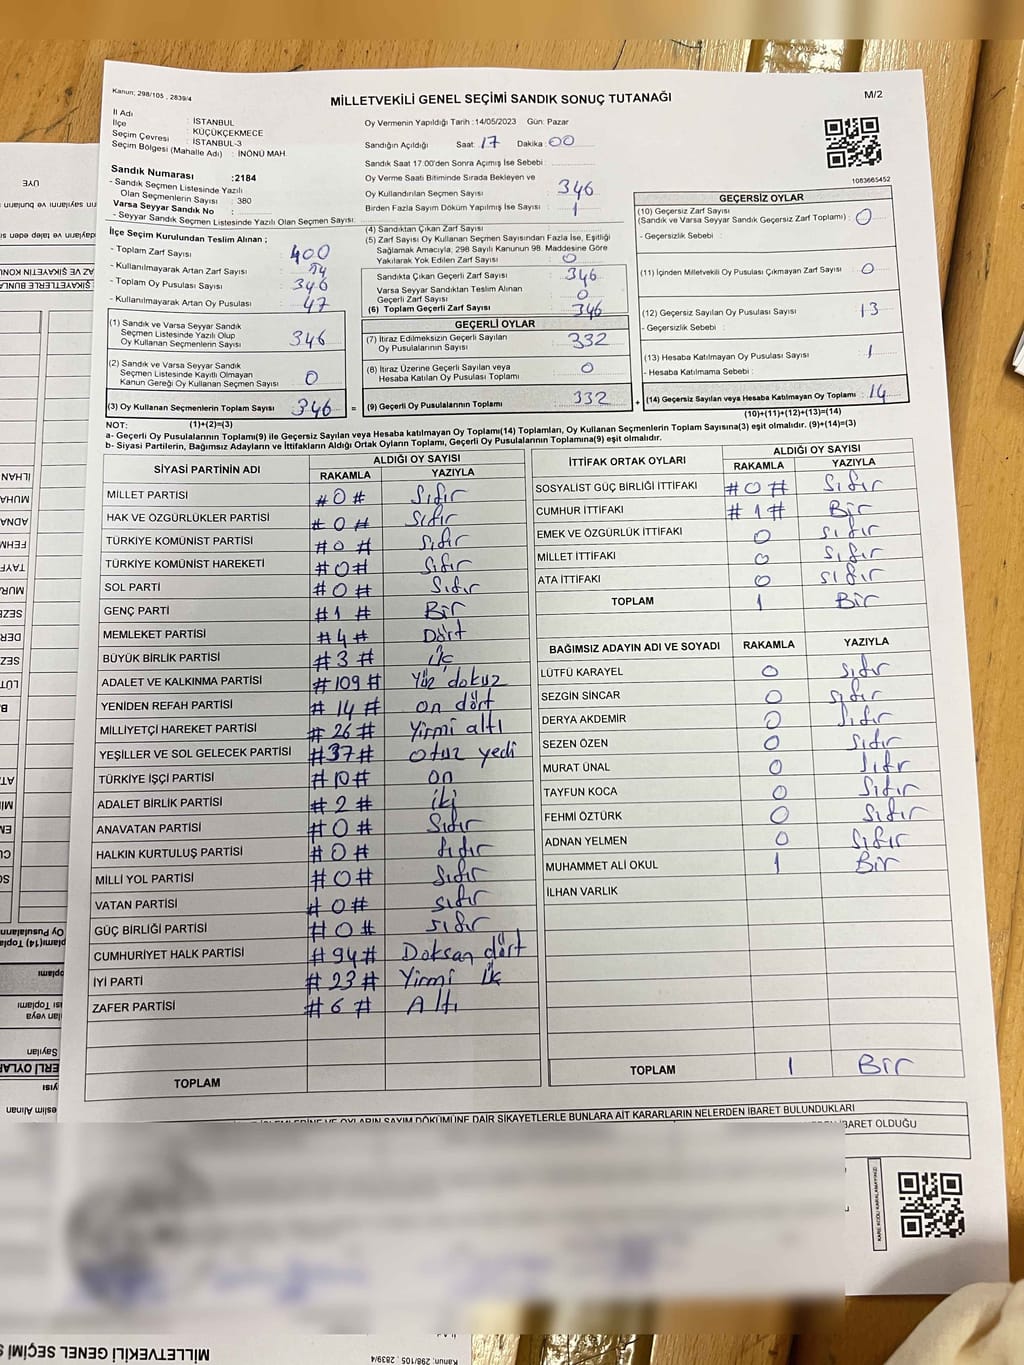 Kanun; 298/105 , 2839/4
MİLLETVEKİLİ GENEL SEÇİMİ SANDIK SONUÇ TUTANAĞI
M/2
İl Adı : İSTANBUL
İlçe : KÜÇÜKÇEKMECE
Seçim Çevresi : İSTANBUL-3
Seçim Bölgesi (Mahalle Adı) : İNÖNÜ MAH.
Sandık Numarası :2184
- Sandık Seçmen Listesinde Yazılı
Olan Seçmenlerin Sayısı : 380
Varsa Seyyar Sandık No :
- Seyyar Sandık Seçmen Listesinde Yazılı Olan Seçmen Sayısı:
Oy Vermenin Yapıldığı Tarih :14/05/2023 Gün: Pazar
Sandığın Açıldığı Saat: 17 Dakika: 00
Sandık Saat 17:00'den Sonra Açımış İse Sebebi :
Oy Verme Saati Bitiminde Sırada Bekleyen ve
Oy Kullandırılan Seçmen Sayısı : 346
Birden Fazla Sayım Döküm Yapılmış İse Sayısı : 1
1083665452
İlçe Seçim Kurulundan Teslim Alınan ;
- Toplam Zarf Sayısı : 400
- Kullanılmayarak Artan Zarf Sayısı : 54
- Toplam Oy Pusulası Sayısı : 346
- Kullanılmayarak Artan Oy Pusulası : 47
(1) Sandık ve Varsa Seyyar Sandık
Seçmen Listesinde Yazılı Olup
Oy Kullanan Seçmenlerin Sayısı 346
(2) Sandık ve Varsa Seyyar Sandık
Seçmen Listesinde Kayıtlı Olmayan
Kanun Gereği Oy Kullanan Seçmen Sayısı 0
(3) Oy Kullanan Seçmenlerin Toplam Sayısı 346 =
(4) Sandıktan Çıkan Zarf Sayısı :
(5) Zarf Sayısı Oy Kullanan Seçmen Sayısından Fazla İse, Eşitliği
Sağlamak Amacıyla, 298 Sayılı Kanunun 98. Maddesine Göre
Yakılarak Yok Edilen Zarf Sayısı : 0
Sandıkta Çıkan Geçerli Zarf Sayısı : 346
Varsa Seyyar Sandıktan Teslim Alınan
Geçerli Zarf Sayısı : 0
(6) Toplam Geçerli Zarf Sayısı : 346
GEÇERLİ OYLAR
(7) İtiraz Edilmeksizin Geçerli Sayılan
Oy Pusulalarının Sayısı : 332
(8) İtiraz Üzerine Geçerli Sayılan veya
Hesaba Katılan Oy Pusulası Toplamı : 0
(9) Geçerli Oy Pusulalarının Toplamı : 332 +
GEÇERSİZ OYLAR
(10) Geçersiz Zarf Sayısı
(Sandık ve Varsa Seyyar Sandık Geçersiz Zarf Toplamı) : 0
- Geçersizlik Sebebi :
(11) İçinden Milletvekili Oy Pusulası Çıkmayan Zarf Sayısı : 0
(12) Geçersiz Sayılan Oy Pusulası Sayısı : 13
- Geçersizlik Sebebi :
(13) Hesaba Katılmayan Oy Pusulası Sayısı : 1
- Hesaba Katılmama Sebebi :
(14) Geçersiz Sayılan veya Hesaba Katılmayan Oy Toplamı : 14
NOT: (1)+(2)=(3)
(10)+(11)+(12)+(13)=(14)
a- Geçerli Oy Pusulalarının Toplamı(9) ile Geçersiz Sayılan veya Hesaba katılmayan Oy Toplamı(14) Toplamları, Oy Kullanan Seçmenlerin Toplam Sayısına(3) eşit olmalıdır. (9)+(14)=(3)
b- Siyasi Partilerin, Bağımsız Adayların ve İttifakların Aldığı Ortak Oyların Toplamı, Geçerli Oy Pusulalarının Toplamına(9) eşit olmalıdır.
SİYASİ PARTİNİN ADI ALDIĞI OY SAYISI
RAKAMLA YAZIYLA
MİLLET PARTİSİ #0# Sıfır
HAK VE ÖZGÜRLÜKLER PARTİSİ #0# Sıfır
TÜRKİYE KOMÜNİST PARTİSİ #0# Sıfır
TÜRKİYE KOMÜNİST HAREKETİ #0# Sıfır
SOL PARTİ #0# Sıfır
GENÇ PARTİ #1# Bir
MEMLEKET PARTİSİ #4# Dört
BÜYÜK BİRLİK PARTİSİ #3# üç
ADALET VE KALKINMA PARTİSİ #109# Yüz dokuz
YENİDEN REFAH PARTİSİ #14# on dört
MİLLİYETÇİ HAREKET PARTİSİ #26# Yirmi altı
YEŞİLLER VE SOL GELECEK PARTİSİ #37# otuz yedi
TÜRKİYE İŞÇİ PARTİSİ #10# on
ADALET BİRLİK PARTİSİ #2# iki
ANAVATAN PARTİSİ #0# Sıfır
HALKIN KURTULUŞ PARTİSİ #0# Sıfır
MİLLİ YOL PARTİSİ #0# Sıfır
VATAN PARTİSİ #0# sıfır
GÜÇ BİRLİĞİ PARTİSİ #0# sıfır
CUMHURİYET HALK PARTİSİ #94# Doksan dört
İYİ PARTİ #23# Yirmi üç
ZAFER PARTİSİ #6# Altı
TOPLAM
İTTİFAK ORTAK OYLARI ALDIĞI OY SAYISI
RAKAMLA YAZIYLA
SOSYALİST GÜÇ BİRLİĞİ İTTİFAKI #0# Sıfır
CUMHUR İTTİFAKI #1# Bir
EMEK VE ÖZGÜRLÜK İTTİFAKI 0 sıfır
MİLLET İTTİFAKI 0 Sıfır
ATA İTTİFAKI 0 sıfır
TOPLAM 1 Bir
BAĞIMSIZ ADAYIN ADI VE SOYADI RAKAMLA YAZIYLA
LÜTFÜ KARAYEL 0 sıfır
SEZGİN SİNCAR 0 sıfır
DERYA AKDEMİR 0 Sıfır
SEZEN ÖZEN 0 Sıfır
MURAT ÜNAL 0 Sıfır
TAYFUN KOCA 0 Sıfır
FEHMİ ÖZTÜRK 0 Sıfır
ADNAN YELMEN 0 Sıfır
MUHAMMET ALİ OKUL 1 Bir
İLHAN VARLIK
TOPLAM 1 Bir
OYLARIN SAYIM DÖKÜMÜNE DAİR ŞİKAYETLERLE BUNLARA AİT KARARLARIN NELERDEN İBARET BULUNDUKLARI
İBARET OLDUĞU
MİLLETVEKİLİ GENEL SEÇİMİ S
Kanun; 298/105 , 2839/4